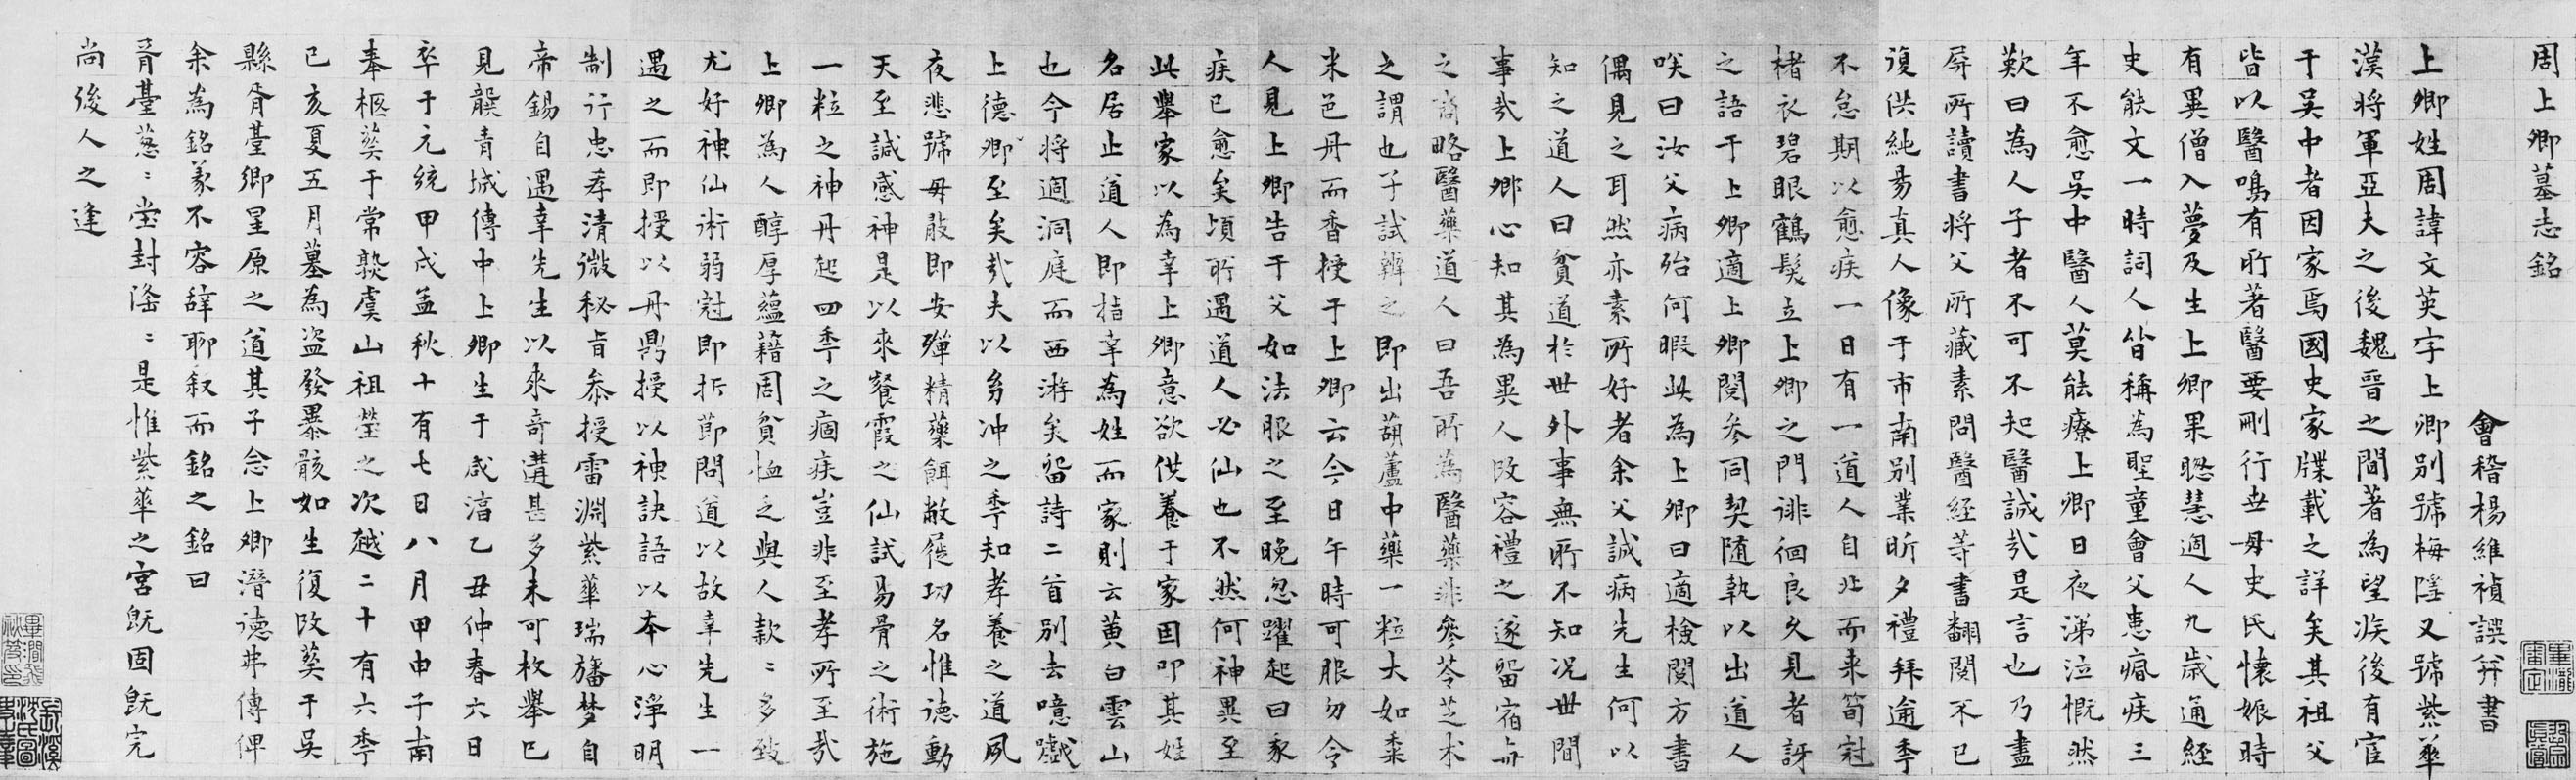 周上卿墓志銘
會稽楊維禎譔并書
上卿姓周諱文英字上卿別號梅隱又號紫華
漢將軍亞夫之後魏晉之間著為望族後有宦
于吳中者因家焉國史家牒載之詳矣其祖父
皆以醫鳴有所著醫要刪行世母史氏懷娠時
有異僧入夢及生上卿果聰慧過人九歲通經
史能文一時詞人皆稱為聖童會父患痼疾三
年不愈吳中醫人莫能療上卿日夜涕泣慨然
歎曰為人子者不可不知醫誠哉是言也乃盡
屏所讀書將父所藏素問醫經等書翻閱不已
復供純昜真人像于市南別業昕夕禮拜逾季
不怠期以愈疾一日有一道人自北而来筍冠
楮衣碧眼鶴髮立上卿之門誹徊良久見者訝
之語于上卿適上卿閱參同契随執以出道人
咲曰汝父病殆何暇此為上卿曰適檢閱方書
偶見之耳然亦素所好者余父誠病先生何以
知之道人曰貧道於世外事無所不知况世間
事哉上卿心知其為異人改容禮之遂留宿与
之商略醫藥道人曰吾所為醫藥非參苓芝术
之謂也子試辨之即出葫蘆中藥一粒大如黍
米色丹而香授于上卿云今日午時可服勿令
人見上卿告于父如法服之至晚忽躍起曰家
疾已愈矣頃所遇道人必仙也不然何神異至
此舉家以為幸上卿意欲供養于家因叩其姓
名居止道人即指幸為姓而家則云黄白雲山
也今将過洞庭而西游矣留詩二首別去噫戲
上德卿至矣哉夫以㓜冲之季知孝養之道夙
夜悲號毋敢即安殫精藥餌敝屣功名惟德動
天至諴感神是以來餐霞之仙試昜骨之術施
一粒之神丹起四季之痼疾豈非至孝所至哉
上卿為人醇厚蘊藉周貧恤乏與人款〻多致
尤好神仙術弱冠即折節問道以故幸先生一
遇之而即授以丹鼎授以神訣語以本心淨明
制行忠孝清微秘旨叅授雷淵紫華瑞旛梦自
帝錫自遇幸先生以來奇遘甚多未可枚舉已
見龔青城傳中上卿生于咸淳乙丑仲春六日
卒于元統甲戌孟秋十有七日八月甲申子南
奉柩葬于常熟虞山祖塋之次越二十有六季
已亥夏五月墓為盗發暴骸如生復改葬于吳
縣胥臺鄉星原之道其子念上卿潛德弗傳俾
余為銘義不容辭聊叙而銘之銘曰
胥臺蔥〻堂封湰〻是惟紫華之宮既固既完
尚後人之逢